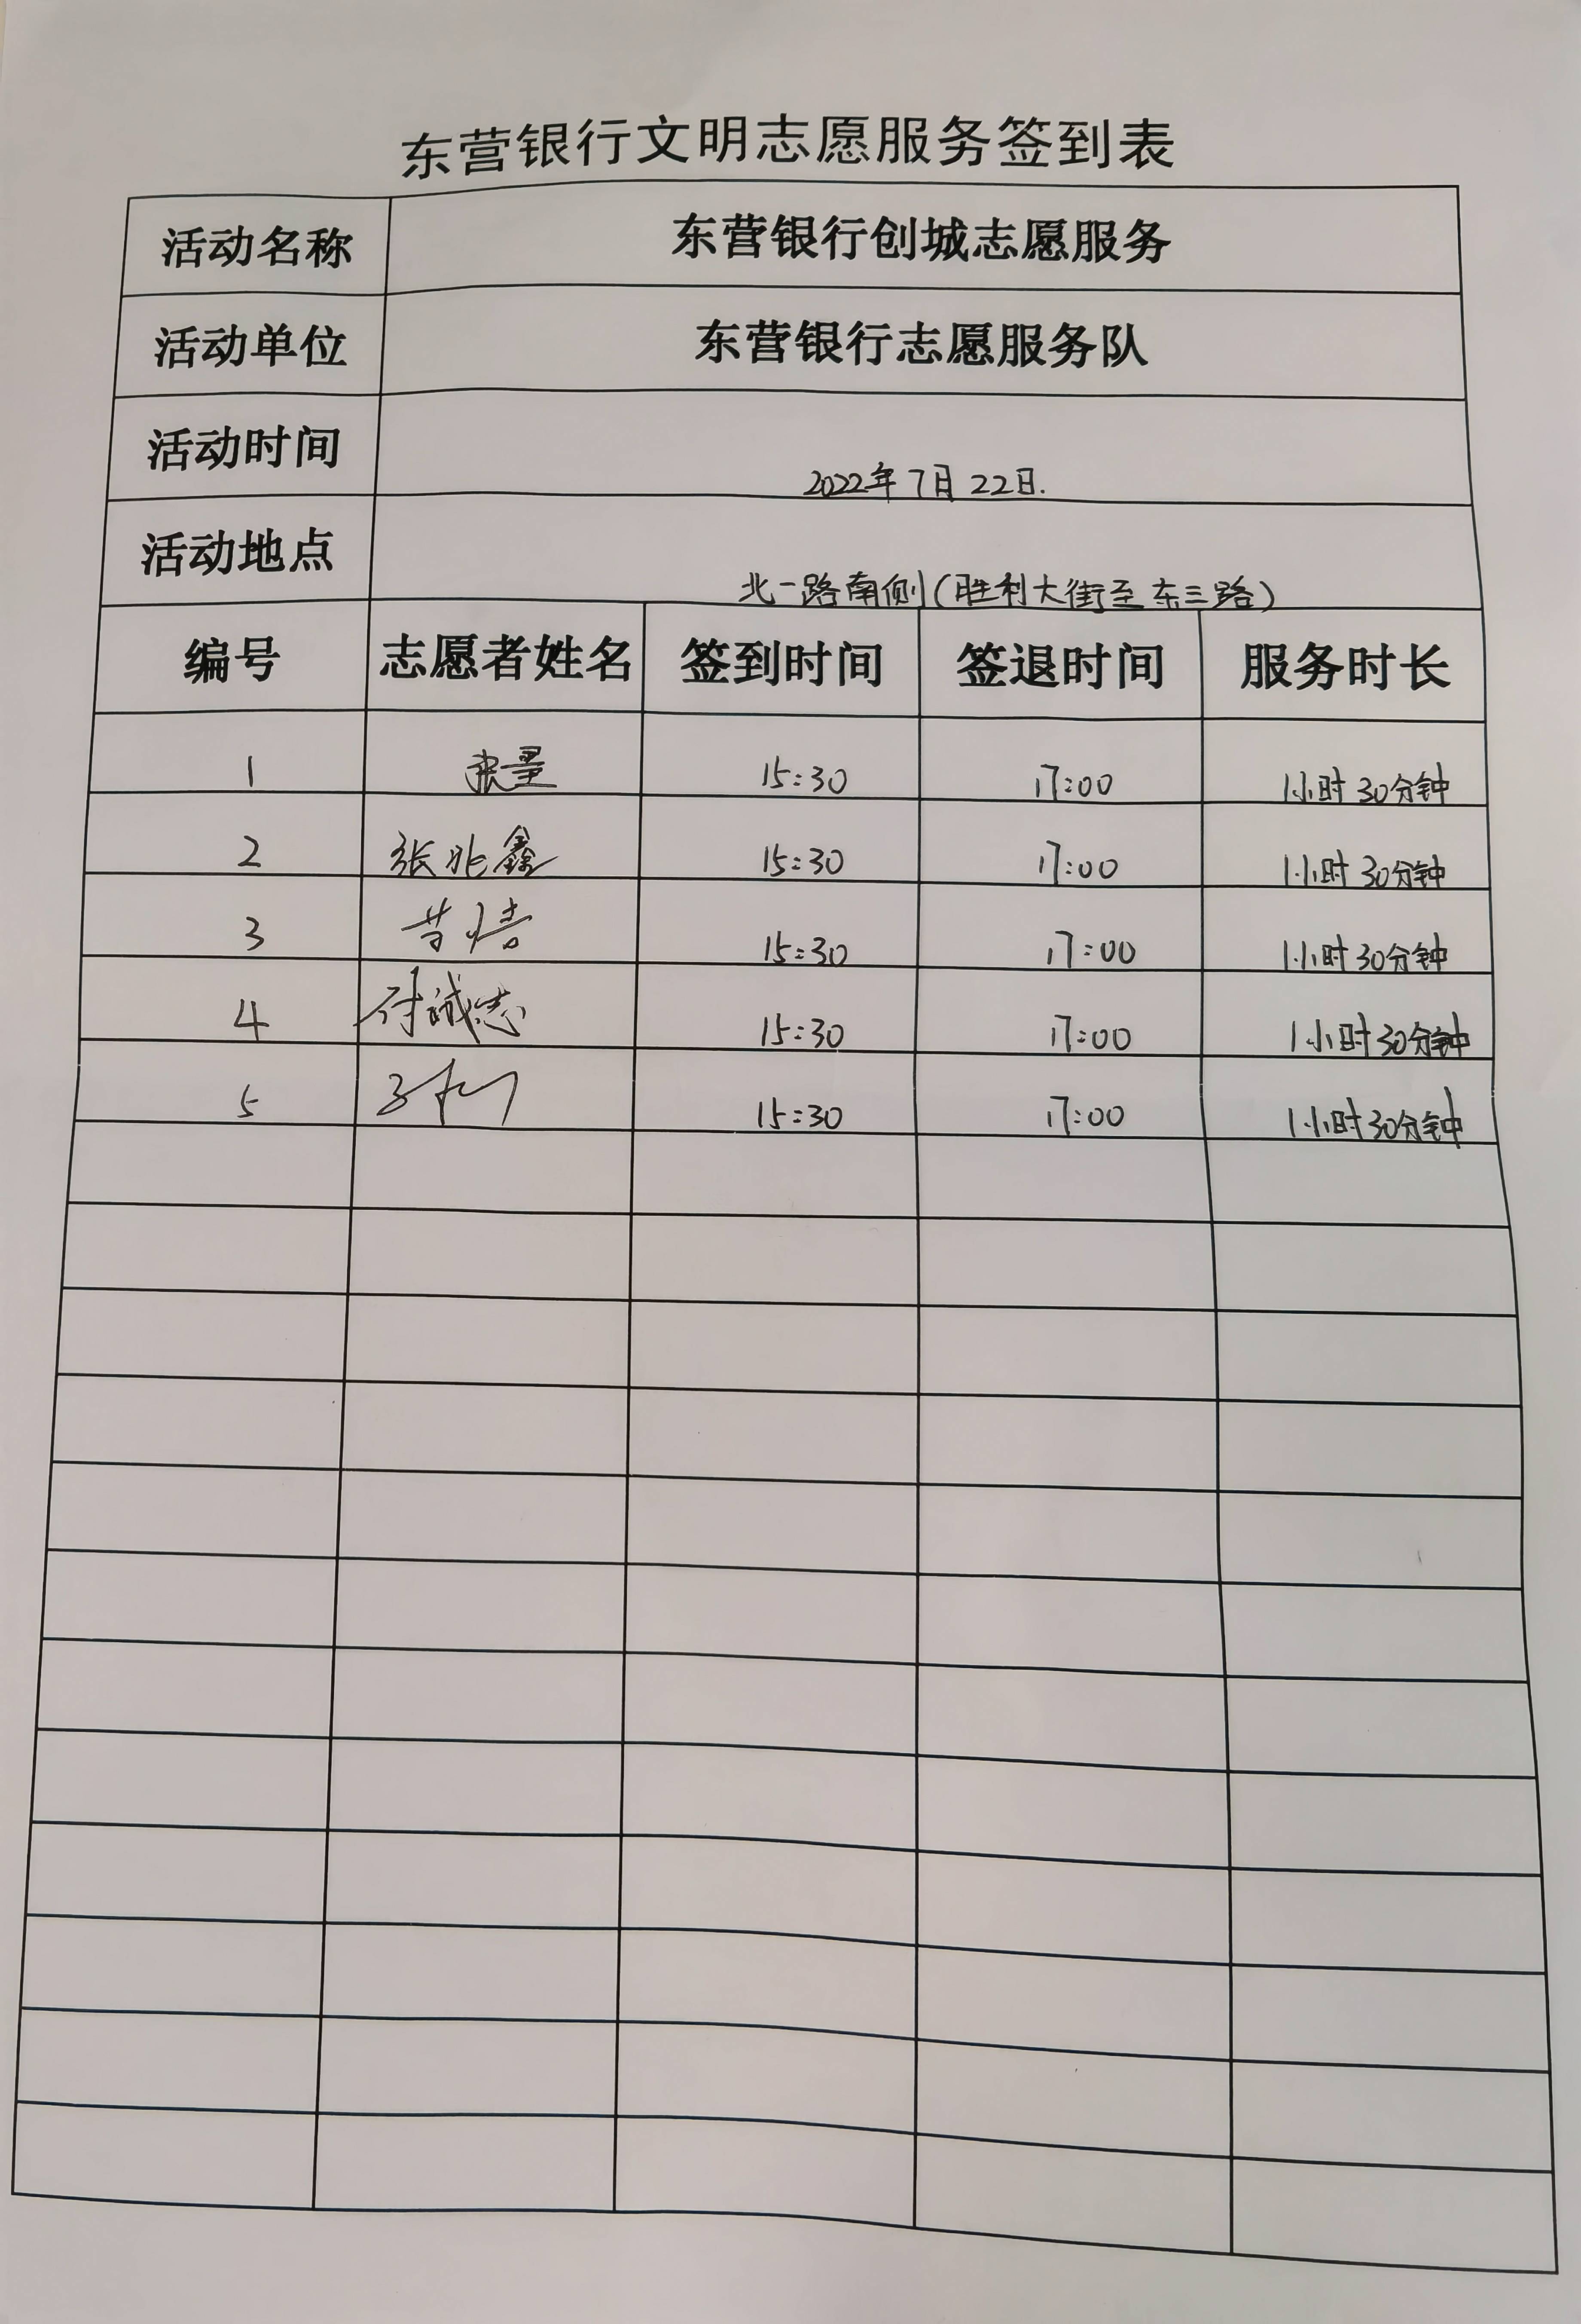 东营银行文明志愿服务签到表
活动名称 东营银行创城志愿服务
活动单位 东营银行志愿服务队
活动时间 2022年7月22日.
活动地点 北一路南侧(胜利大街至东三路)
编号 志愿者姓名 签到时间 签退时间 服务时长
1 15:30 17:00 1小时30分钟
2 张兆鑫 15:30 17:00 1小时30分钟
3 15:30 17:00 1小时30分钟
4 付诚志 15:30 17:00 1小时30分钟
5 15:30 17:00 1小时30分钟